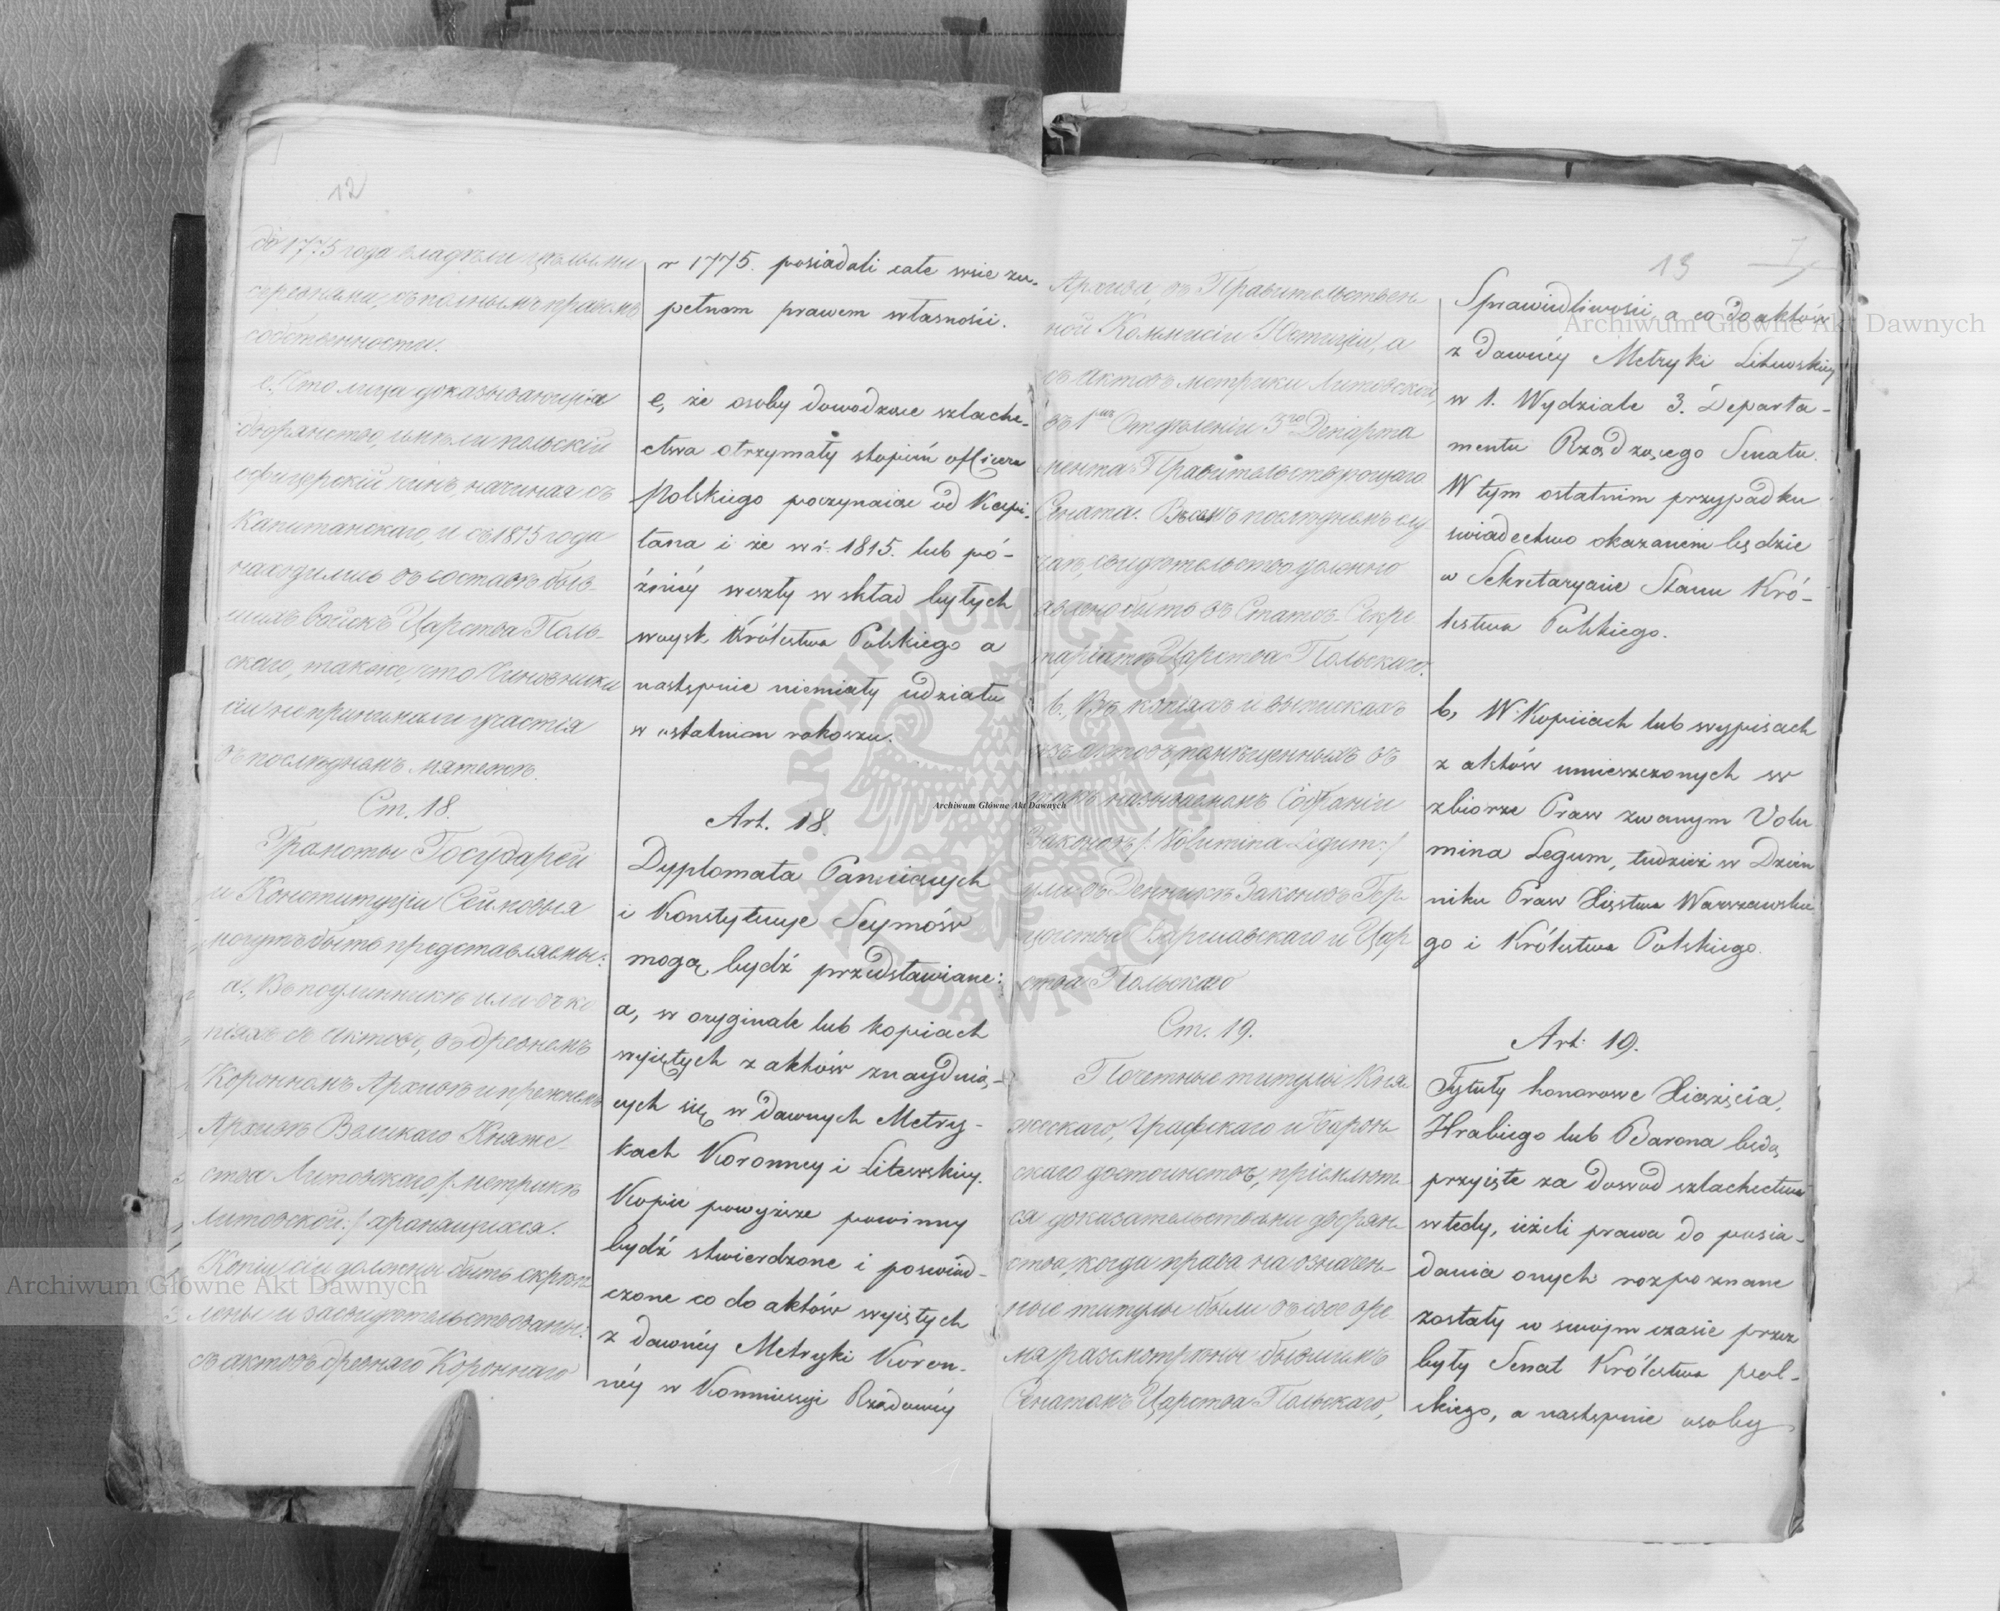 12
до 1775 года владѣли цѣлыми
деревнями, съ полнымъ правомъ
собственности.
е, Что лица доказывающія
дворянство, имѣли польскій
офицерскій чинъ, начиная съ
Капитанскаго, и съ 1815 года
находились въ составѣ быв-
шихъ войскъ Царства Поль-
скаго, также, что Чиновники
сіи не принимали участія
въ послѣднемъ мятежѣ.
Ст. 18.
Грамоты Государей
и Конституціи Сеймовыя
могутъ быть представляемы:
а, Въ подлинникѣ или въ ко
піяхъ съ актовъ, въ древнемъ
Коронномъ Архивѣ и прежнемъ
Архивѣ Великаго Княже-
ства Литовскаго, /: метрикѣ
литовской :/ хранящихся.
Копіи сіи должны быть скрѣп
лены и засвидѣтельствованы:
съ актовъ древняго Короннаго
r 1775. posiadali całe wsie zu-
pełnem prawem własności.
e, że osoby dowodzące szlache-
ctwa otrzymały stopień officera
Polskiego poczynaiąc od Kapi-
tana i że w r. 1815. lub pó-
źniéy weszły w skład byłych
woysk Królestwa Polskiego a
następnie niemiały udziału
w ostatniem rokoszu.
Art. 18.
Dyplomata Panuiących
i Konstytucye Seymów
mogą bydź przedstawiane:
a, w oryginale lub kopiach
wyiętych z aktów znayduią-
cych się w dawnych Metry-
kach Koronney i Litewskiey.
Kopie powyższe powinny
bydź stwierdzone i poświad-
czone co do aktów wyiętych
z dawnéy Metryki Koron-
néy w Kommissyi Rządowéy
13
Архива, въ Правительствен
ной Коммисіи Юстиціи, а
съ актовъ метрики Литовской,
въ 1мъ Отдѣленіи 3го Департа
мента Правительствующаго
Сената. Въ семъ послѣднемъ слу
чаѣ, свидѣтельство должно
явлено быть въ Статсъ-Секре
таріатѣ Царства Польскаго.
b, Въ копіяхъ и выпискахъ
изъ актовъ, помѣщенныхъ въ
такъ называемомъ Собраніи
Законовъ /: Volumina Legum :/
или въ Дневникѣ Законовъ Гер
цогства Варшавскаго и Цар
ства Польскаго
Ст. 19.
Почетные титулы Кня
жескаго, Графскаго и Барон
скаго достоинствъ, пріемлют
ся доказательствами дворян
ства, когда права на означен
ные титулы были въ свое вре
мя разсмотрѣны бывшимъ
Сенатомъ Царства Польскаго,
Sprawiedliwości, a co do aktów
z dawnéy Metryki Litewskiey
w 1. Wydziale 3. Departa-
mentu Rządzącego Senatu.
W tym ostatnim przypadku
świadectwo okazanem będzie
w Sekretaryacie Stanu Kró-
lestwa Polskiego.
b, W Kopiiach lub wypisach
z aktów umieszczonych w
zbiorze Praw zwanym Volu
mina Legum, tudzież w Dzien
niku Praw Xięstwa Warszawskie
go i Królestwa Polskiego.
Art. 19.
Tytuły honorowe Xiążęcia,
Hrabiego lub Barona będą
przyięte za dowod szlachectwa
wtedy, ieżeli prawa do posia-
dania onych rozpoznane
zostały w swoim czasie przez
były Senat Królestwa Pol-
skiego, a następnie osoby
Archiwum Główne Akt Dawnych
Archiwum Główne Akt Dawnych
Archiwum Główne Akt Dawnych
ARCHIWUM GŁÓWNE AKT DAWNYCH